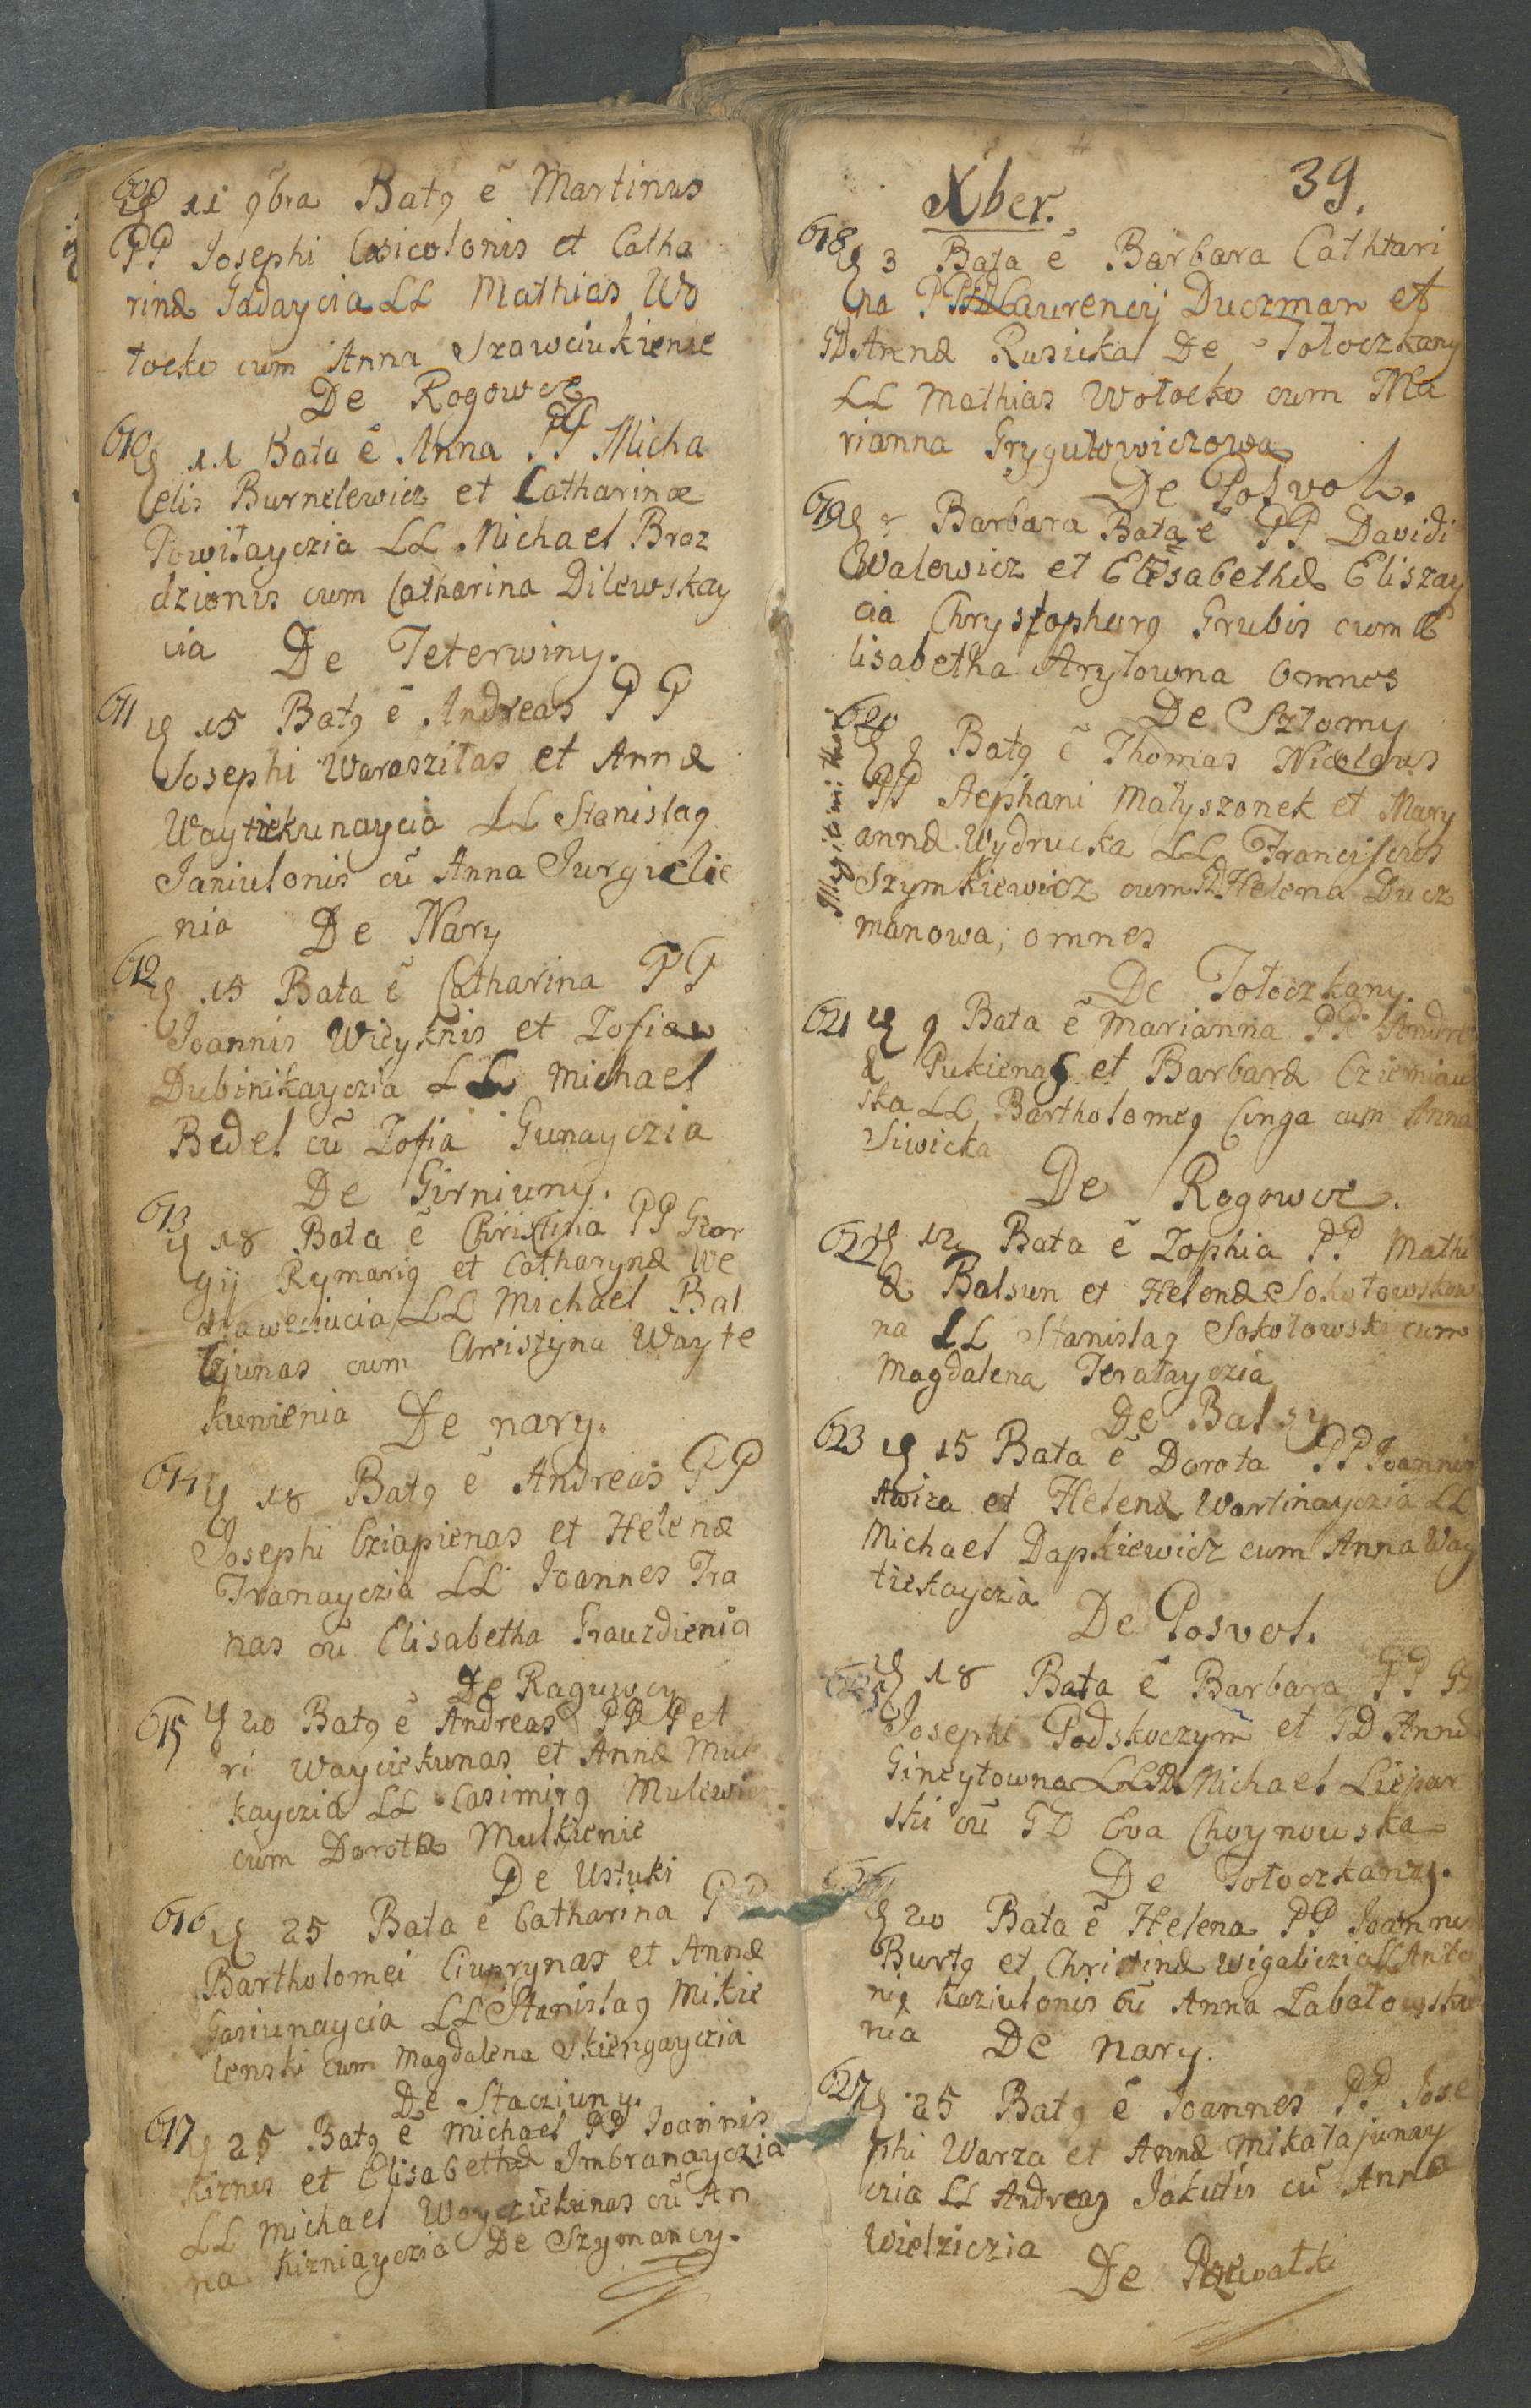 609
11 9bra Bat9 ē Martinus
PP Josephi Casicolonis et Catha
rinæ Gadaycia LL Mathias Wo
łocko cum Anna Szawciukienie
De Rogowcz
610
11 Bata ē Anna PP Micha
elis Burnelewicz et Catharinæ
Powiłayczia LL Michael Braz
dzionis cum Catharina Dilewskay
cia De Teterwiny.
611
15 Bat9 ē Andreas PP
Josephi Waraszitas et Annæ
Waytiekunaycia LL Stanisla9
Janiulonis cū Anna Jurgielie
nia De Nary
612
15 Bata ē Catharina PP
Joannis Widyknis et Zofiæ
Dubinikayczia LL Michael
Bedel cū Zofia Gunayczia
De Girniuny.
613
18 Bata ē Christina PP Geor
gij Rymari9 et Catharynæ We
LL Michael Bal
cum Christyna Wayte
kunienia De nary.
614
18 Bat9 ē Andreas PP
Josephi Cziapienas et Helenæ
Iranayczia LL Joannes Ira
nas cū Elisabetha Grauzdienia
De Raguwcy
615 20 Bat9 ē Andreas PP Pet
ri Wayciekunas et Annæ Mul
kayczia LL Casimir9 Mulewi
cum Dorothea Mulkienie
De Ustuki
616 25 Bata ē Catharina P
Bartholomei Ciuprynas et Annæ
Gasiunaycia LL Stanisla9 Mikie
lenski cum Magdalena Skiengayczia
De Stacziuny.
617 25 Bat9 ē Michael PP Joannis
Kiznis et Elisabethæ Imbranayczia
LL Michael Wayciekunas cū An
na Kizniayczia De Szymancy.
39.
Xber.
618
3 Bata ē Barbara Cathtari
na PP Laurencij Duczman et
GD Annæ Rusicka De Tołoczkany
LL Mathias Wołocko cum Ma
rianna Grygutowiczowa
De Posvol.
619
Barbara Bata ē PP Davidi
Walewicz et Elisabethæ Eliszay
cia Chrystophur9 Grubis cum E
lisabetha Arylowna Omnes
De Sztomy
620
9 Bat9 ē Thomas Nicolaus
PP Stephani Małyszonek et Mary
annæ Wydrucka LL Franciscus
Szymkiewicz cum GD Helena Ducz
manowa, omnes
Illegitimi thori
De Tołoczkany.
621 9 Bata ē Marianna PP Andre
æ Pukienas et Barbaræ Cziemiau
ska LL Bartholome9 Cunga cum Anna
Siwicka
De Rogowcz.
622 12 Bata ē Zophia PP Mathi
æ Balsun et Helenæ Sokołowskow
na LL Stanisla9 Sokołowski cum
Magdalena Terałayczia
De Balsy
623 15 Bata ē Dorota PP Joannis
Awiza et Helenæ Wartinayczia LL
Michael Dapkiewicz cum Anna Way
tiekayczia
De Posvol.
18 Bata ē Barbara PP GD
Josephi Podskoczym et GD Annæ
Gineytowna LL GD Michael Liepar
ski cū GD Eva Choynowska
De Tołoczkany.
20 Bata ē Helena PP Joannis
Burt9 et Christinæ Wigaliczia LL Anto
ni9 Kaziulonis cū Anna Zabałowskie
nia De nary.
627
25 Bat9 ē Joannes PP Jose
phi Warza et Annæ Mikałajunay
czia LL Andreas Jakutis cū Anna
Wielziczia
De Rzewałki